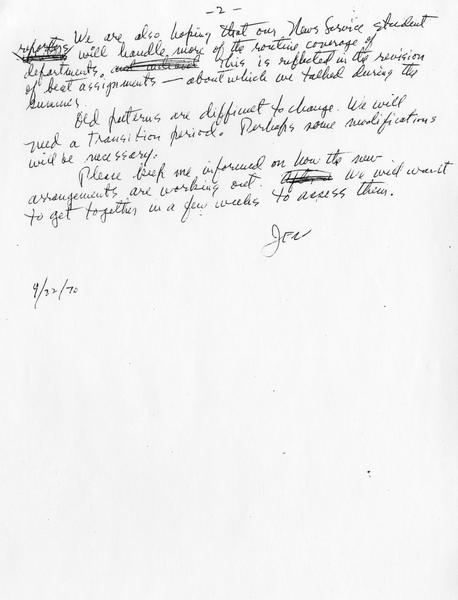 - 2 -
We are also hoping that our News Service student
reporters will handle more of the routine coverage of
departments. This is reflected in the revision
of beat assignments — about which we talked during the
summer.
Old patterns are difficult to change. We will
need a transition period. Perhaps some modifications
will be necessary.
Please keep me informed on how the new
arrangements are working out. We will want
to get together in a few weeks to assess them.
9/22/70